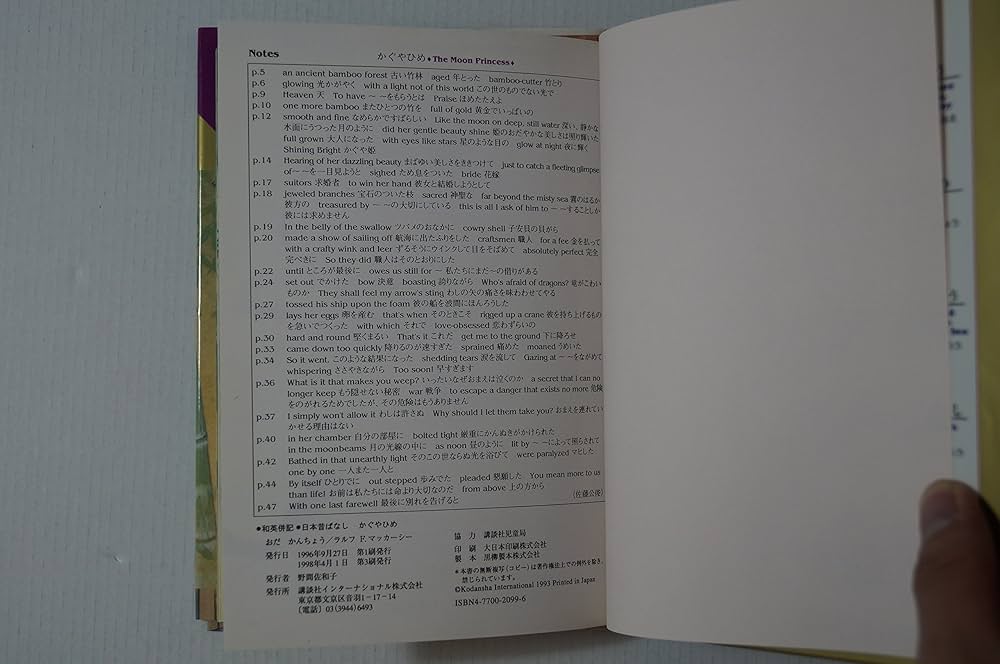 Notes かぐやひめ♦The Moon Princess♦
p.5 an ancient bamboo forest 古い竹林 aged 年とった bamboo-cutter 竹とり
p.6 glowing 光かがやく with a light not of this world この世のものでない光で
p.9 Heaven 天 To have ～ ～をもらうとは Praise ほめたたえよ
p.10 one more bamboo またひとつの竹を full of gold 黄金でいっぱいの
p.12 smooth and fine なめらかですばらしい Like the moon on deep, still water 深い、静かな
水面にうつった月のように did her gentle beauty shine 姫のおだやかな美しさは照り輝いた
full grown 大人になった with eyes like stars 星のような目の glow at night 夜に輝く
Shining Bright かぐや姫
p.14 Hearing of her dazzling beauty まばゆい美しさをききつけて just to catch a fleeting glimpse
of～ ～を一目見ようと sighed ため息をついた bride 花嫁
p.17 suitors 求婚者 to win her hand 彼女と結婚しようとして
p.18 jeweled branches 宝石のついた枝 sacred 神聖な far beyond the misty sea 霞のはるか
彼方の treasured by ～ ～の大切にしている this is all I ask of him to ～ ～することしか
彼には求めません
p.19 In the belly of the swallow ツバメのおなかに cowry shell 子安貝の貝がら
p.20 made a show of sailing off 航海に出たふりをした craftsmen 職人 for a fee 金を払って
with a crafty wink and leer ずるそうにウインクして目をそばめて absolutely perfect 完全
完ぺきに So they did 職人はそのとおりにした
p.22 until ところが最後に owes us still for ～ 私たちにまだ～の借りがある
p.24 set out でかけた bow 決意 boasting 誇りながら Who's afraid of dragons? 竜がこわい
ものか They shall feel my arrow's sting わしの矢の痛さを味わわせてやる
p.27 tossed his ship upon the foam 彼の船を波間にほんろうした
p.29 lays her eggs 卵を産む that's when そのときこそ rigged up a crane 彼を持ち上げるもの
を急いでつくった with which それで love-obsessed 恋わずらいの
p.30 hard and round 堅くまるい That's it これだ get me to the ground 下に降ろせ
p.33 came down too quickly 降りるのが速すぎた sprained 痛めた moaned うめいた
p.34 So it went, このような結果になった shedding tears 涙を流して Gazing at ～ ～をながめて
whispering ささやきながら Too soon! 早すぎます
p.36 What is it that makes you weep? いったいなぜおまえは泣くのか a secret that I can no
longer keep もう隠せない秘密 war 戦争 to escape a danger that exists no more 危険
をのがれるためでしたが、その危険はもうありません
p.37 I simply won't allow it わしは許さぬ Why should I let them take you? おまえを連れてい
かせる理由はない
p.40 in her chamber 自分の部屋に bolted tight 厳重にかんぬきがかけられた
in the moonbeams 月の光線の中に as noon 昼のように lit by ～ ～によって照らされて
p.42 Bathed in that unearthly light そのこの世ならぬ光を浴びて were paralyzed マヒした
one by one 一人また一人と
p.44 By itself ひとりでに out stepped 歩みでた pleaded 懇願した You mean more to us
than life! お前は私たちには命より大切なのだ from above 上の方から
p.47 With one last farewell 最後に別れを告げると (佐藤公俊)
●和英併記●日本昔ばなし かぐやひめ
おだ かんちょう／ラルフ F.マッカーシー
発行日 1996年9月27日 第1刷発行
1998年4月1日 第3刷発行
発行者 野間佐和子
発行所 講談社インターナショナル株式会社
東京都文京区音羽1−17−14
〔電話〕03(3944)6493
協力 講談社児童局
印刷 大日本印刷株式会社
製本 黒柳製本株式会社
＊本書の無断複写(コピー)は著作権法上での例外を除き、
禁じられています。
©Kodansha International 1993 Printed in Japan
ISBN4-7700-2099-6